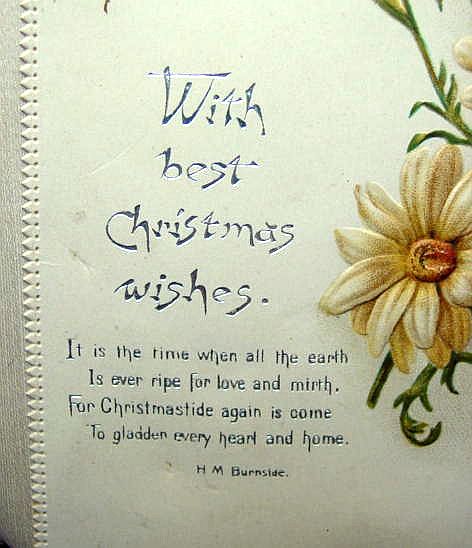 With
best
Christmas
wishes.
It is the time when all the earth
Is ever ripe for love and mirth,
For Christmastide again is come
To gladden every heart and home.
H M Burnside.